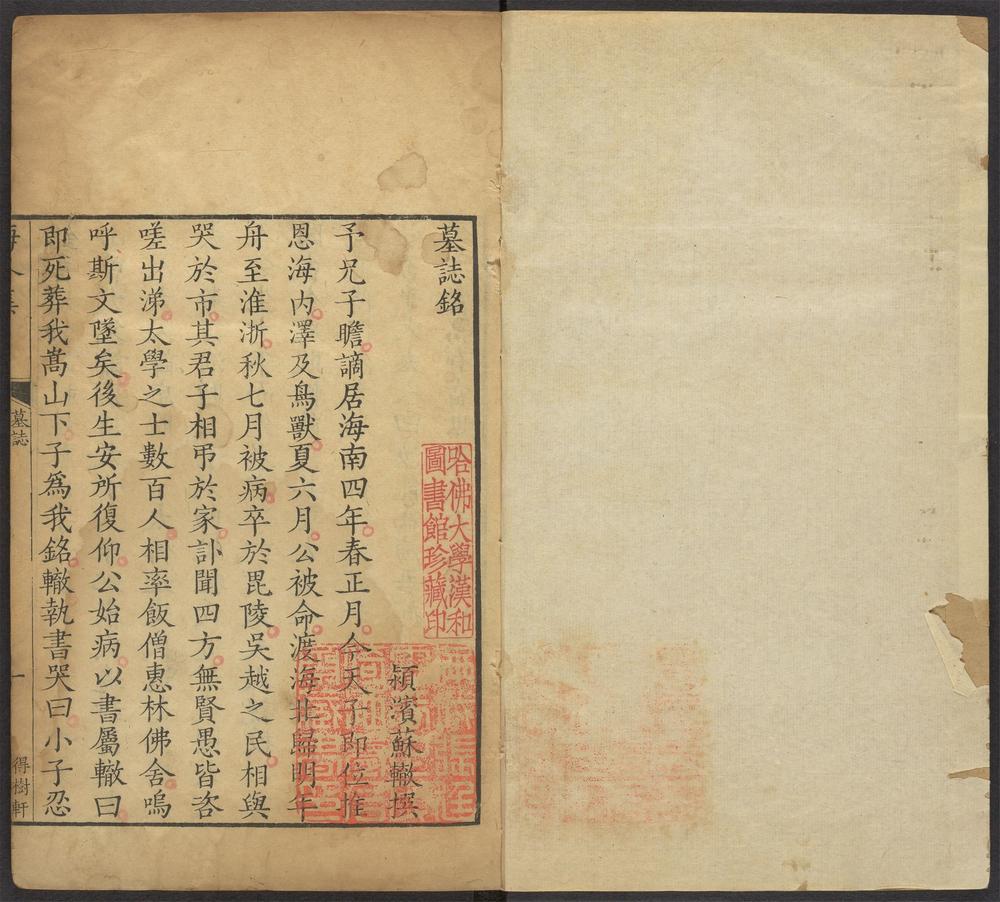 墓誌銘
潁濱蘇轍撰
予兄子瞻謫居海南四年春正月今天子即位推
恩海内澤及鳥獸夏六月公被命渡海北歸明年
舟至淮浙秋七月被病卒於毘陵吳越之民相與
哭於市其君子相弔於家訃聞四方無賢愚皆咨
嗟出涕太學之士數百人相率飯僧惠林佛舍嗚
呼斯文墜矣後生安所復仰公始病以書屬轍曰
即死葬我嵩山下子為我銘轍執書哭曰小子忍
墓誌
一
得樹軒
哈佛大學漢和
圖書館珍藏印